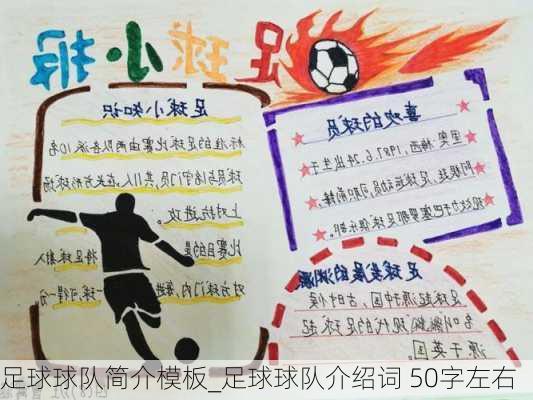 足球小报
足球小知识
标准的足球比赛由两队各派10名
球员与1名守门员,共11人,在长方形球场
上对抗进攻。
比赛目的是 将足球射入
对方球门内,每进一球可得一分
喜欢的球员
里奥·梅西,1987.6.24出生于
阿根廷,足球运动员,司职前锋
现效力于巴塞罗那足球俱乐部。
足球发展的渊源
足球起源中国,古时候
名叫蹴鞠,现代的足球起
源于英国
足球球队简介模板_足球球队介绍词 50字左右